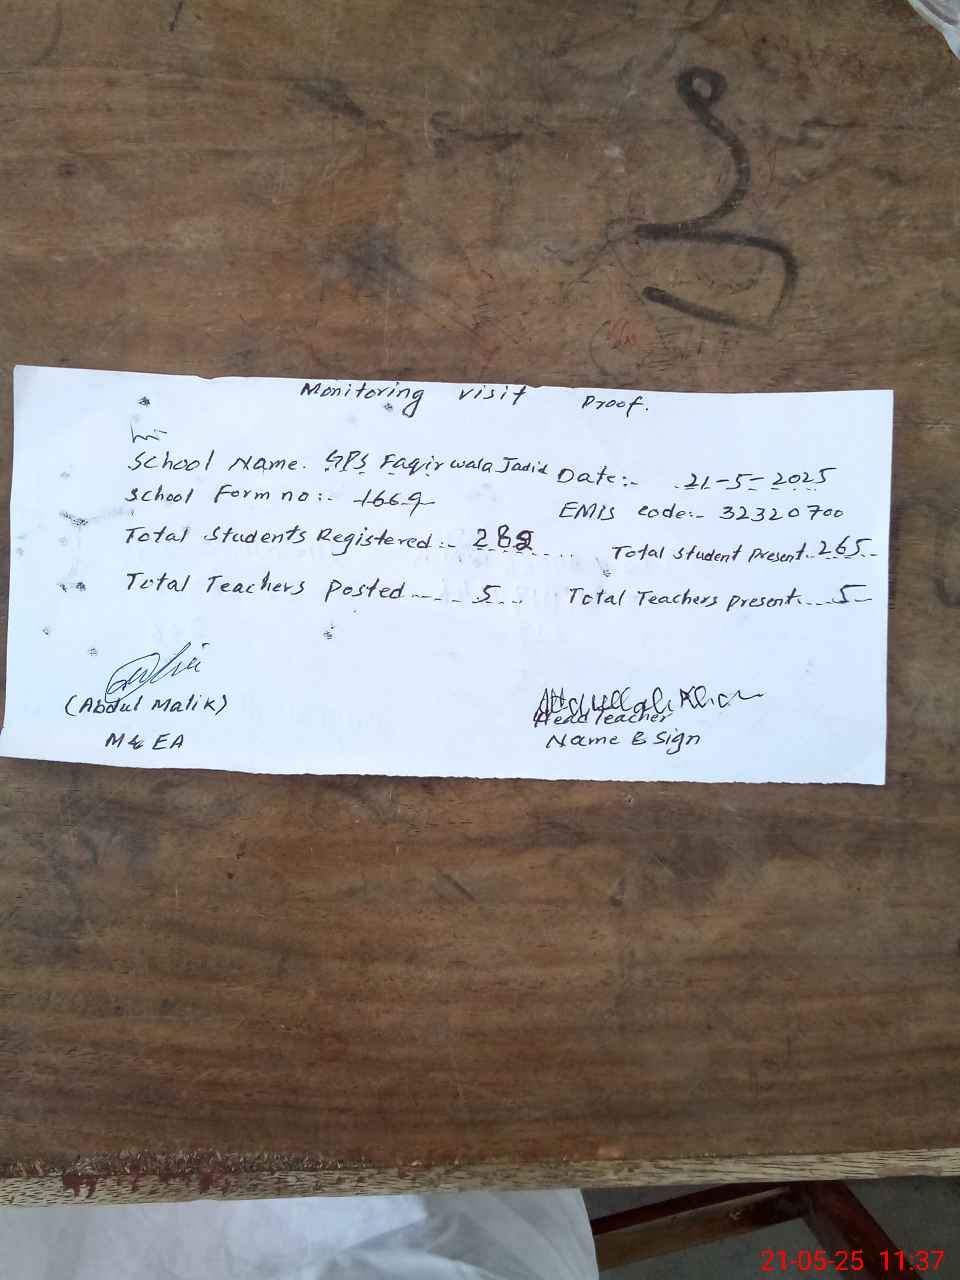 Monitoring visit Proof.
School Name. GPS Faqir wala Jadid Date:- 21-5-2025
School Form no:- 1669
EMIS code:- 32320700
Total Students Registered:- 282 Total student present 265
Total Teachers Posted 5 Total Teachers present 5
(Abdul Malik)
Attaullah Khan
Head Teacher
M& EA
Name & Sign
21-05-25 11:37